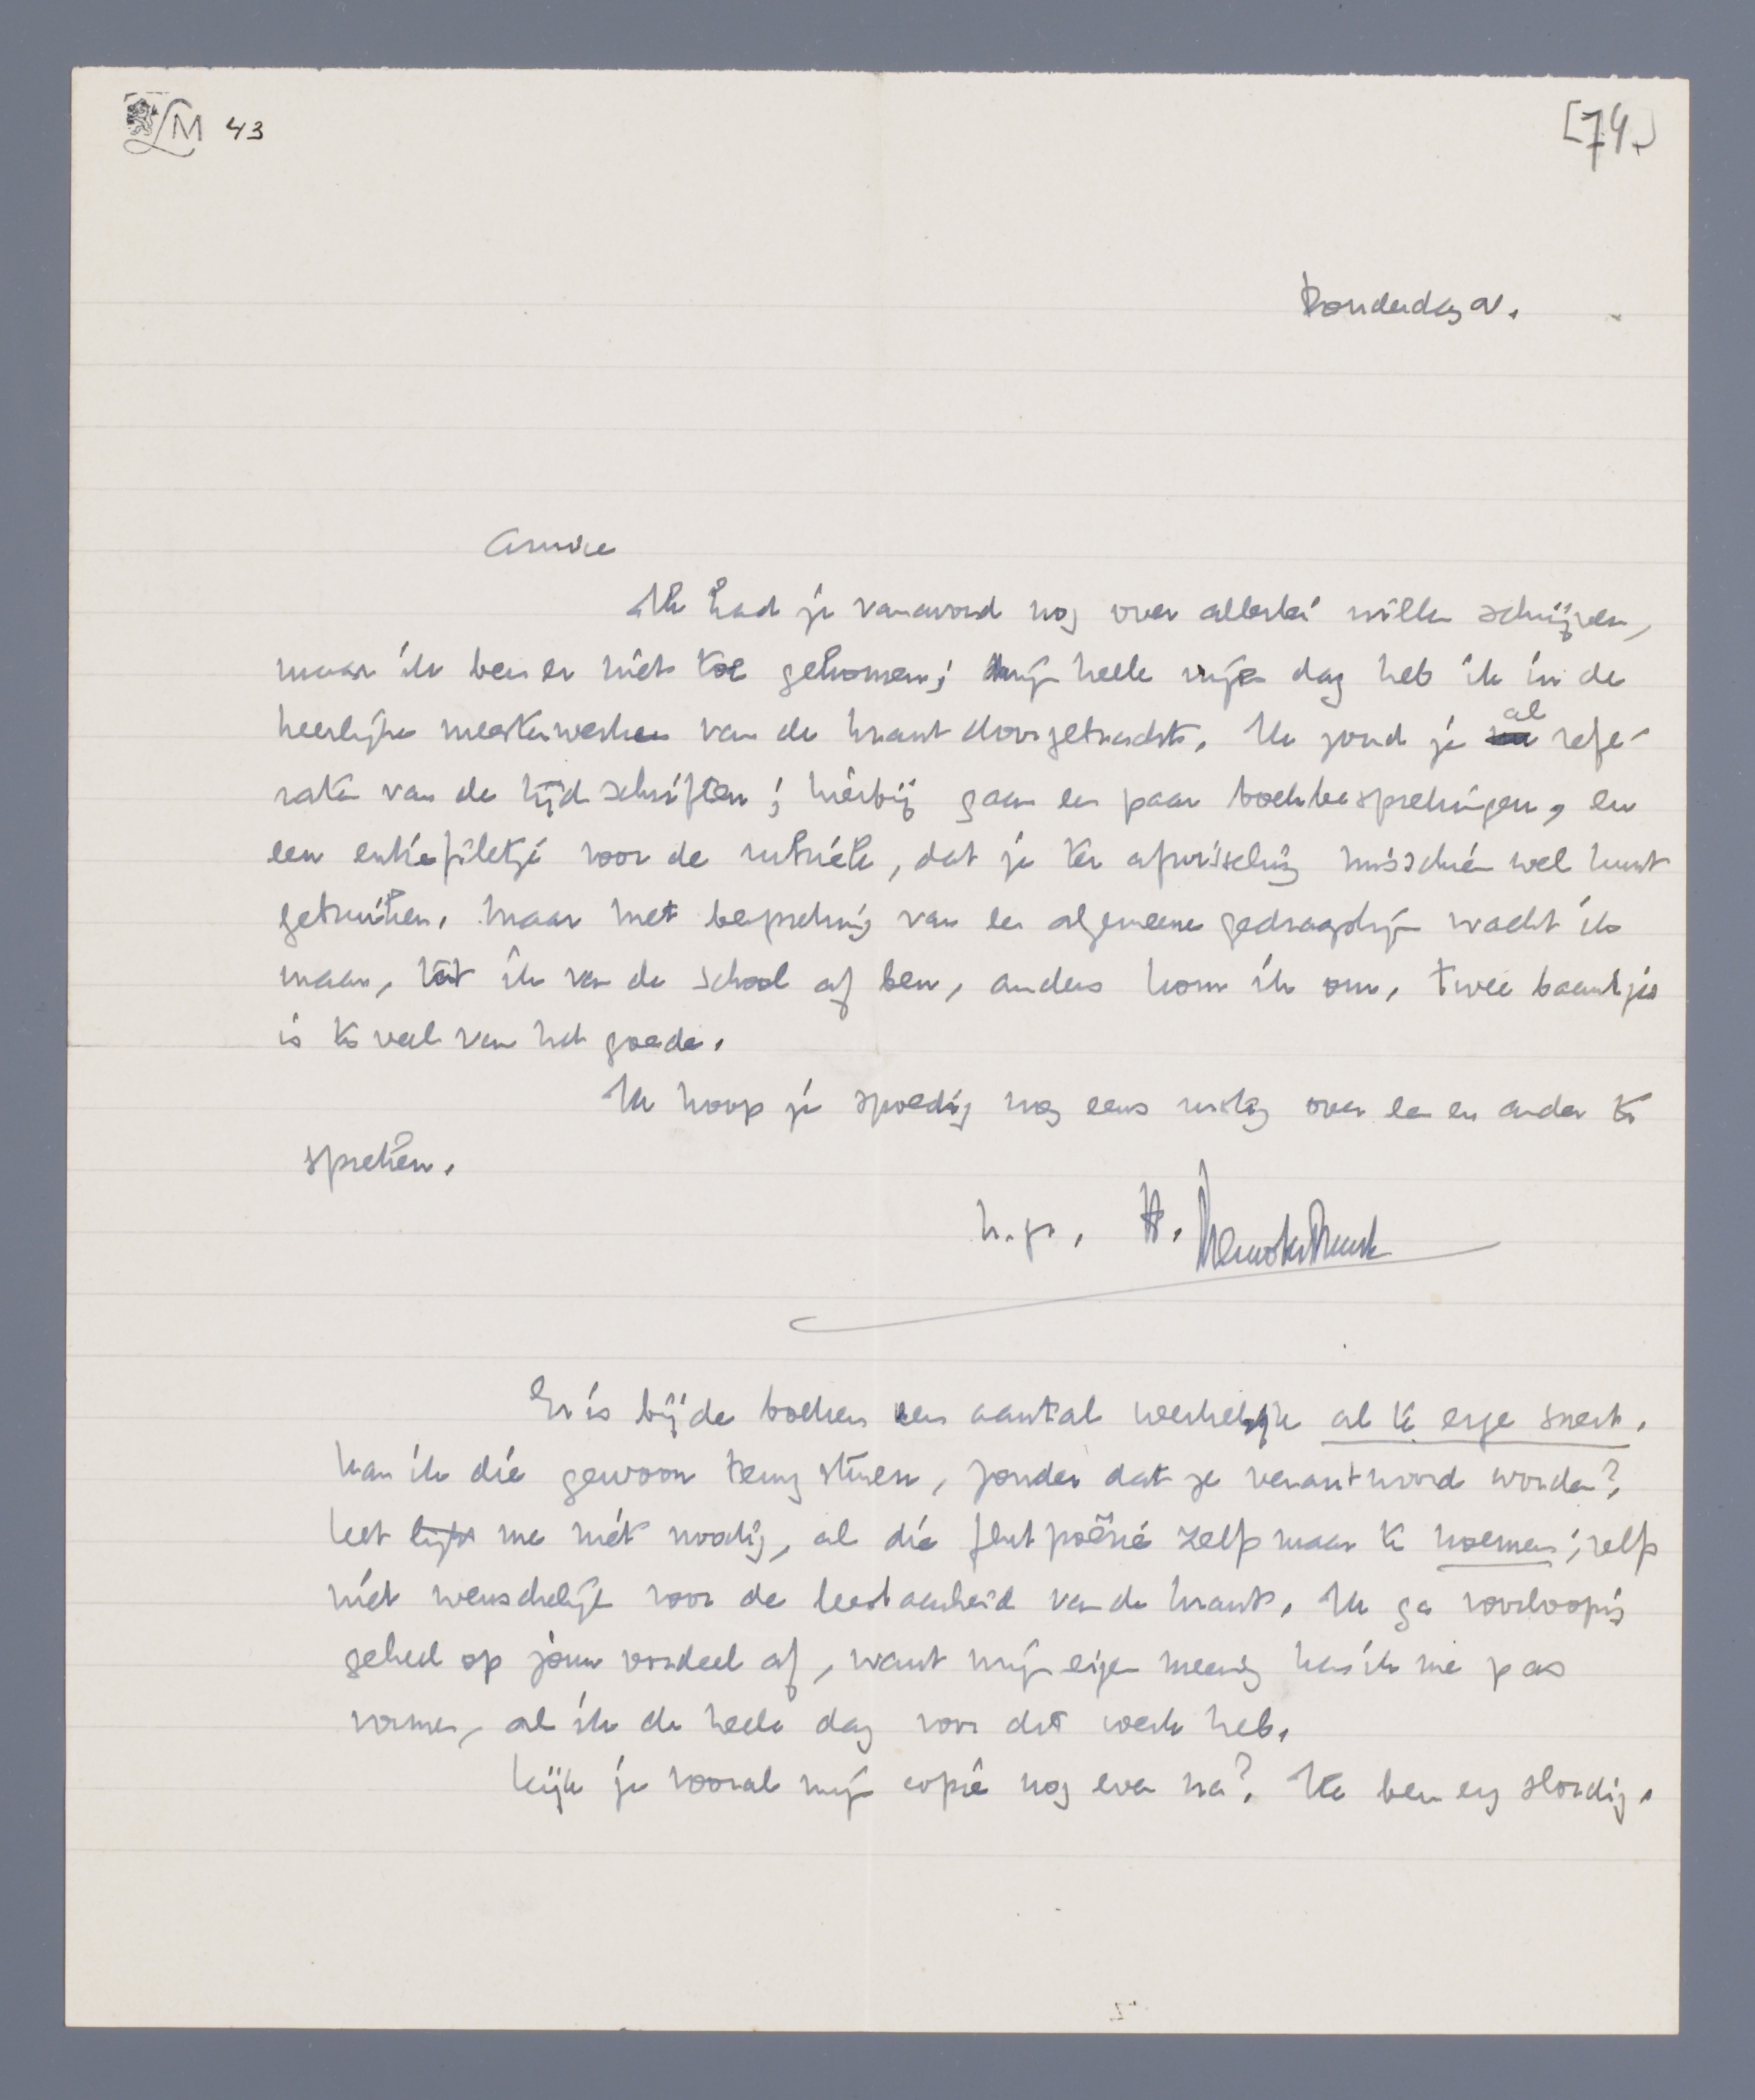 LM 43
[74]
Donderdag av.
Amice
Ik had je vanavond nog over allerlei willen schrijven,
maar ik ben er niet toe gekomen; mijn heele vrije dag heb ik in de
heerlijke meesterwerken van de krant doorgebracht. Ik zond je al refe-
raten van de tijdschriften; hierbij gaan een paar boekbesprekingen, en
een entrefiletje voor de rubriek, dat je ter afwisseling misschien wel kunt
gebruiken. Maar met bespreking van een algemeene gedragslijn wacht ik
maar, tot ik van de school af ben, anders kom ik om. Twee baantjes
is te veel van het goede.
Ik hoop je spoedig nog eens rustig over een en ander te
spreken.
h.gr., H.
Er is bij de boeken een aantal werkelijk al te erge snert.
Kan ik die gewoon terug sturen, zonder dat ze verantwoord worden?
Het lijkt me niet noodig, al die flutpoëzie zelfs maar te noemen; zelfs
niet wenschelijk voor de leesbaarheid van de krant. Ik ga voorloopig
geheel op jouw oordeel af, want mijn eigen meening kan ik me pas
vormen, als ik de heele dag voor dit werk heb.
Kijk je vooral mijn copie nog even na? Ik ben erg slordig.